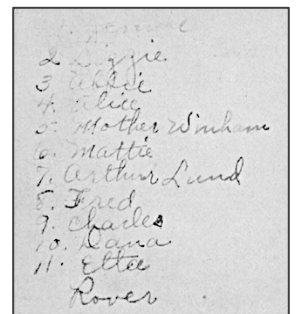 2 Lizzie
3 Abbie
4. Alice
5. Mother Winham
6. Mattie
7. Arthur Lund
8. Fred
9. Charles
10. Dana
11. Etta
Rover